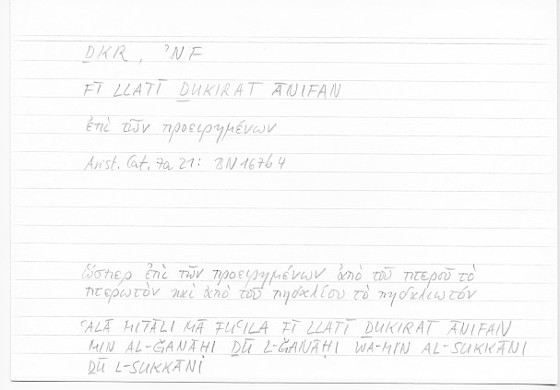 ḎKR, ʾNF
FĪ LLATĪ ḎUKIRAT ĀNIFAN
ἐπὶ τῶν προειρημένων
Arist. Cat. 7a 21: BN 167b 4
ὥσπερ ἐπὶ τῶν προειρημένων ἀπὸ τοῦ πτεροῦ τὸ
πτερωτὸν καὶ ἀπὸ τοῦ πηδαλίου τὸ πηδαλιωτόν
ʿALĀ MIṮĀLI MĀ FUʿILA FĪ LLATĪ ḎUKIRAT ĀNIFAN
MIN AL-ǦANĀḤI ḎŪ L-ǦANĀḤI WA-MIN AL-SUKKĀNI
ḎŪ L-SUKKĀNI